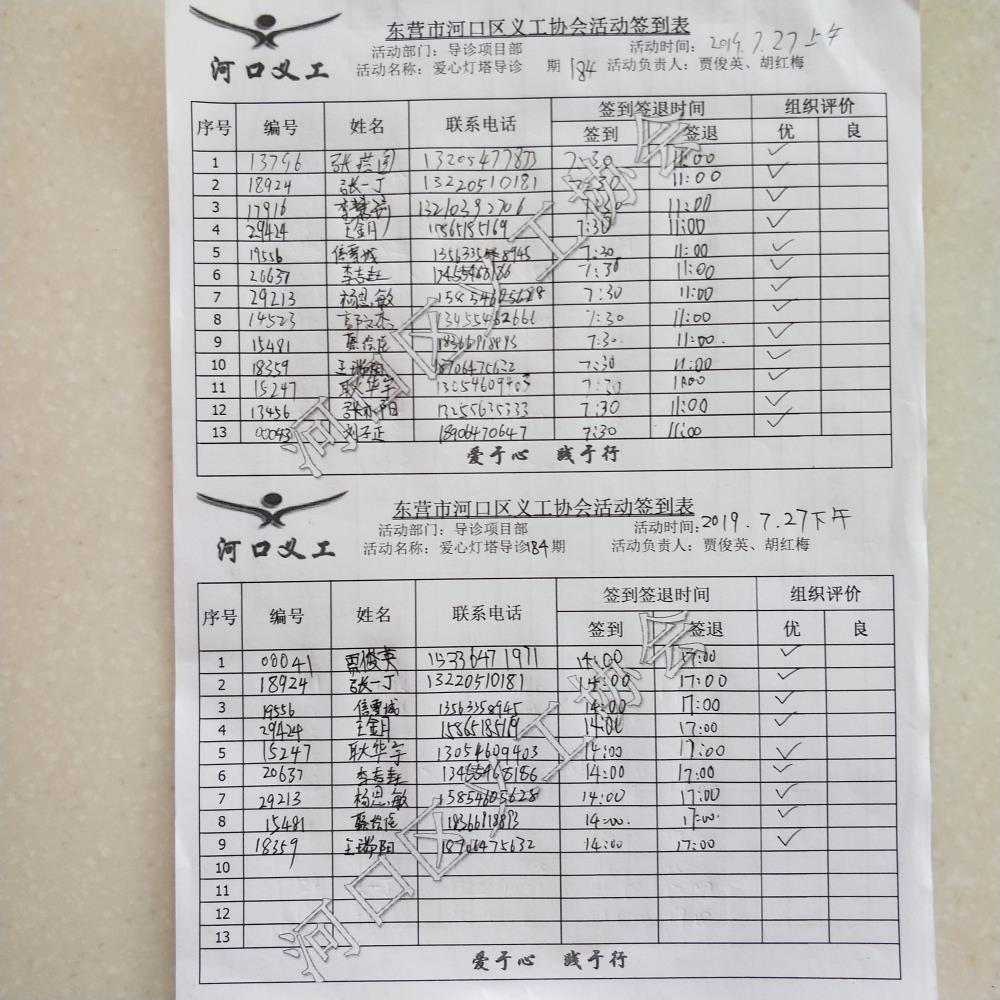 东营市河口区义工协会活动签到表
河口义工
活动部门：导诊项目部 活动时间：2019.7.27上午
活动名称：爱心灯塔导诊 期184 活动负责人：贾俊英、胡红梅
序号 编号 姓名 联系电话 签到签退时间 组织评价
签到 签退 优 良
1 13796 13205477873 7:30 11:00 ✓
2 18924 张一丁 13220510181 7:30 11:00 ✓
3 17916 13210392706 7:30 11:00 ✓
4 29424 王金月 15865185169 7:30 11:00 ✓
5 19556 信雪城 7:30 11:00 ✓
6 20637 李吉赵 13455468186 7:30 11:00 ✓
7 29213 杨恩敏 15854605628 7:30 11:00 ✓
8 14523 高文杰 13455462661 7:30 11:00 ✓
9 15481 18366918893 7:30. 11:00. ✓
10 18359 王瑞阳 18706475632 7:30 11:00 ✓
11 15247 耿华宇 13054609403 7:30 11:00 ✓
12 13456 张亦阳 13255635333 7:30 11:00 ✓
13 00043 刘子正 18906470647 7:30 11:00 ✓
爱于心 践于行
河口区义工协会
东营市河口区义工协会活动签到表
河口义工
活动部门：导诊项目部 活动时间：2019.7.27下午
活动名称：爱心灯塔导诊184期 活动负责人：贾俊英、胡红梅
序号 编号 姓名 联系电话 签到签退时间 组织评价
签到 签退 优 良
1 00041 贾俊英 15336471971 14:00 17:00 ✓
2 18924 张一丁 13220510181 14:00 17:00 ✓
3 19556 信雪城 13563358945 14:00 17:00 ✓
4 29424 王金月 15865185169 14:00 17:00 ✓
5 15247 耿华宇 13054609403 14:00 17:00 ✓
6 20637 李吉赵 13455468186 14:00 17:00 ✓
7 29213 杨恩敏 15854605628 14:00 17:00 ✓
8 15481 18366918893 14:00. 17:00. ✓
9 18359 王瑞阳 18706475632 14:00 17:00 ✓
10
11
12
13
爱于心 践于行
河口区义工协会